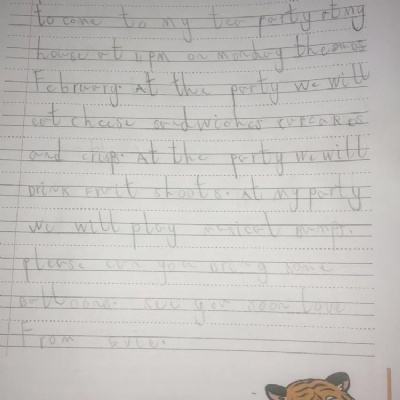 to come to my tea party at my
house at 4PM on monday the
February. At the party we will
eat cheese sandwiches cupcakes
and crisp. At the party we will
Drink Fruit shoots. At my party
we will play musical bumps.
please can you bring some
balloons. see you soon love
From evie.